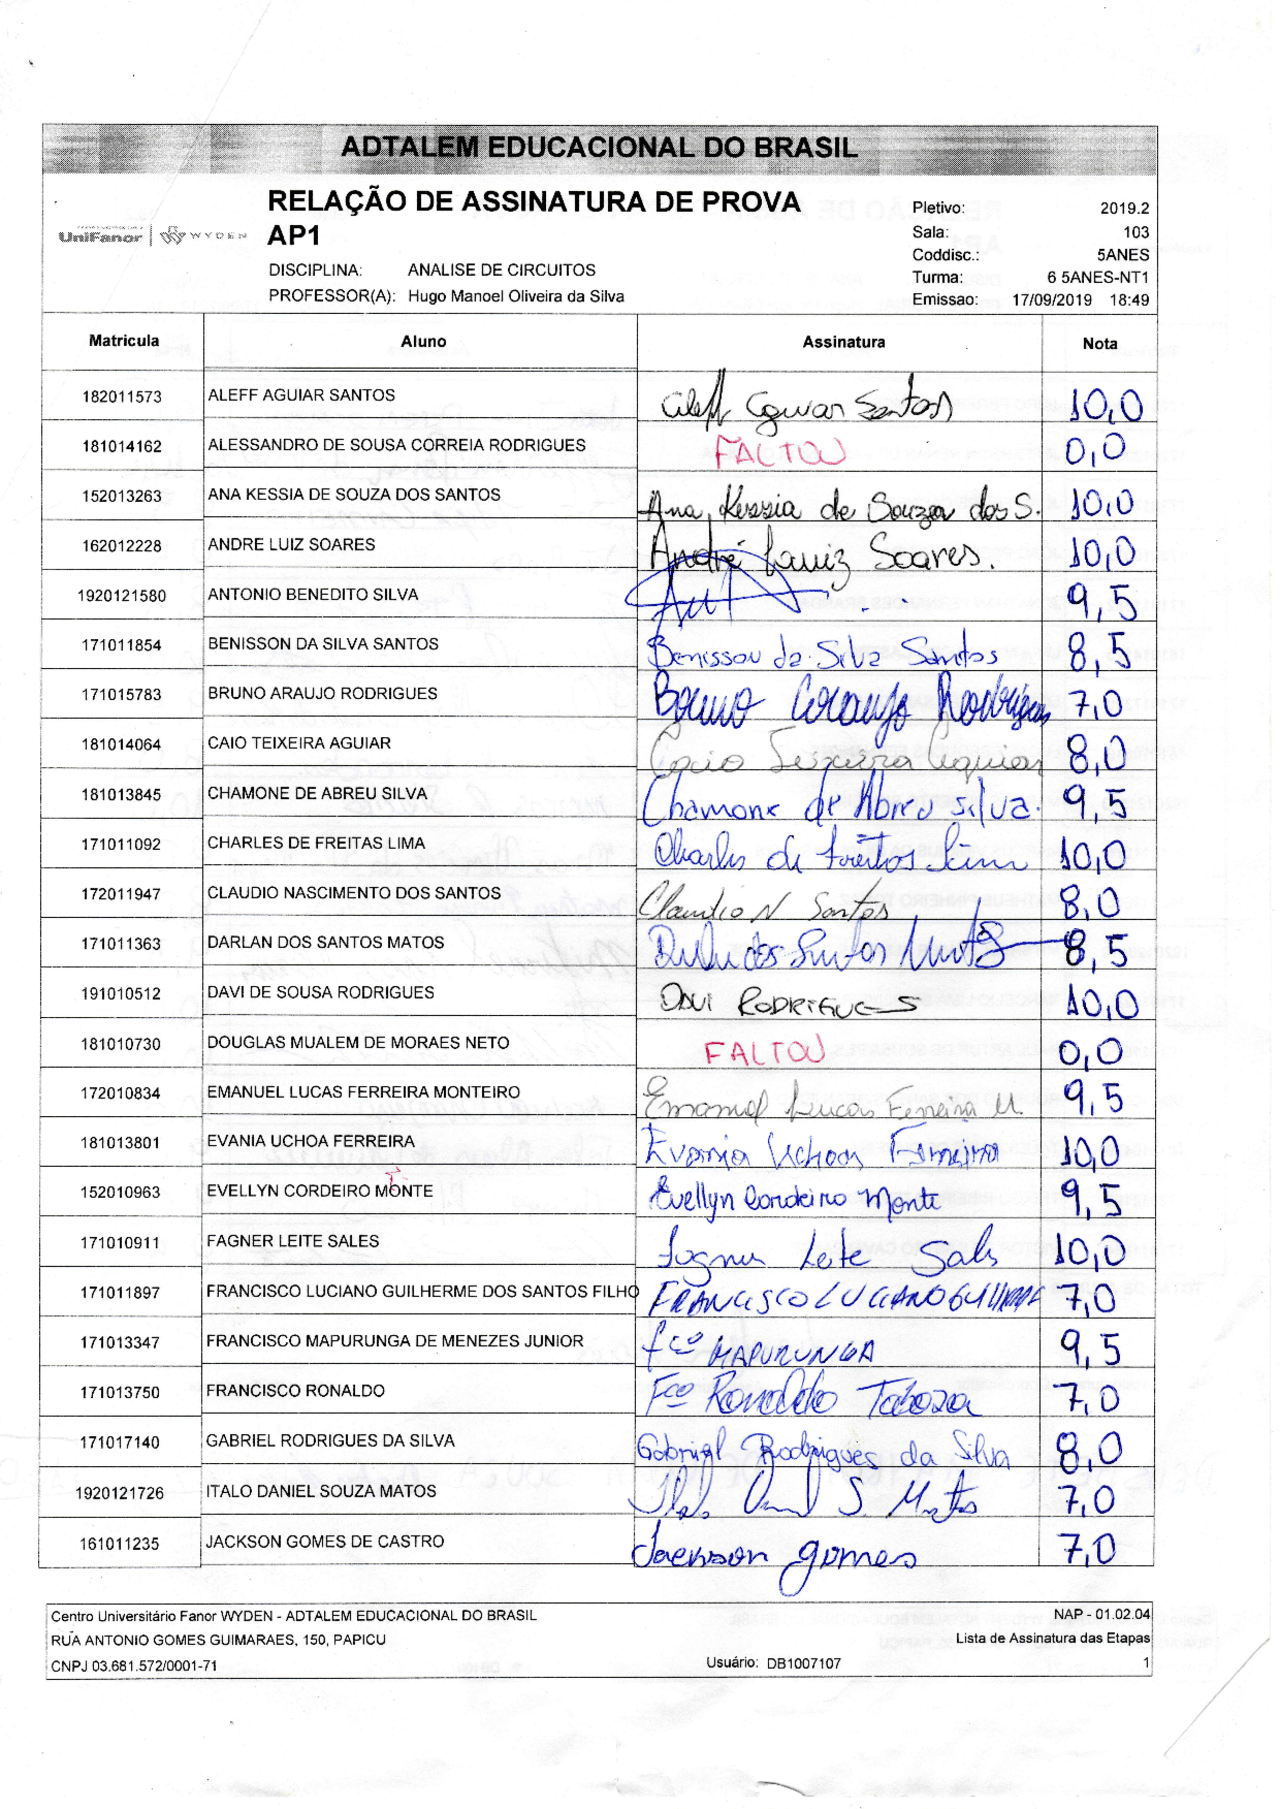 ADTALEM EDUCACIONAL DO BRASIL
RELAÇÃO DE ASSINATURA DE PROVA
AP1
UniFanor | WYDEN
DISCIPLINA: ANALISE DE CIRCUITOS
PROFESSOR(A): Hugo Manoel Oliveira da Silva
Pletivo: 2019.2
Sala: 103
Coddisc.: 5ANES
Turma: 6 5ANES-NT1
Emissao: 17/09/2019 18:49
Matricula Aluno Assinatura Nota
182011573 ALEFF AGUIAR SANTOS Aleff Aguiar Santos 10,0
181014162 ALESSANDRO DE SOUSA CORREIA RODRIGUES FALTOU 0,0
152013263 ANA KESSIA DE SOUZA DOS SANTOS Ana Kessia de Souza dos S. 10,0
162012228 ANDRE LUIZ SOARES André Luiz Soares. 10,0
1920121580 ANTONIO BENEDITO SILVA 9,5
171011854 BENISSON DA SILVA SANTOS Benisson da Silva Santos 8,5
171015783 BRUNO ARAUJO RODRIGUES Bruno Araujo Rodrigues 7,0
181014064 CAIO TEIXEIRA AGUIAR Caio Teixeira Aguiar 8,0
181013845 CHAMONE DE ABREU SILVA Chamone de Abreu Silva. 9,5
171011092 CHARLES DE FREITAS LIMA Charles de Freitas Lima 10,0
172011947 CLAUDIO NASCIMENTO DOS SANTOS Claudio N Santos 8,0
171011363 DARLAN DOS SANTOS MATOS Darlan dos Santos Matos 8,5
191010512 DAVI DE SOUSA RODRIGUES DAVI RODRIGUES 10,0
181010730 DOUGLAS MUALEM DE MORAES NETO FALTOU 0,0
172010834 EMANUEL LUCAS FERREIRA MONTEIRO Emanuel Lucas Ferreira M. 9,5
181013801 EVANIA UCHOA FERREIRA Evania Uchoa Ferreira 10,0
152010963 EVELLYN CORDEIRO MONTE Evellyn Cordeiro Monte 9,5
171010911 FAGNER LEITE SALES Fagner Leite Sales 10,0
171011897 FRANCISCO LUCIANO GUILHERME DOS SANTOS FILHO FRANCISCO LUCIANO GUILHERME 7,0
171013347 FRANCISCO MAPURUNGA DE MENEZES JUNIOR Fco MAPURUNGA 9,5
171013750 FRANCISCO RONALDO Fco Ronaldo Taboza 7,0
171017140 GABRIEL RODRIGUES DA SILVA Gabriel Rodrigues da Silva 8,0
1920121726 ITALO DANIEL SOUZA MATOS Italo Daniel S. Matos 7,0
161011235 JACKSON GOMES DE CASTRO Jackson gomes 7,0
Centro Universitário Fanor WYDEN - ADTALEM EDUCACIONAL DO BRASIL NAP - 01.02.04
RUA ANTONIO GOMES GUIMARAES, 150, PAPICU Lista de Assinatura das Etapas
CNPJ 03.681.572/0001-71 Usuário: DB1007107 1